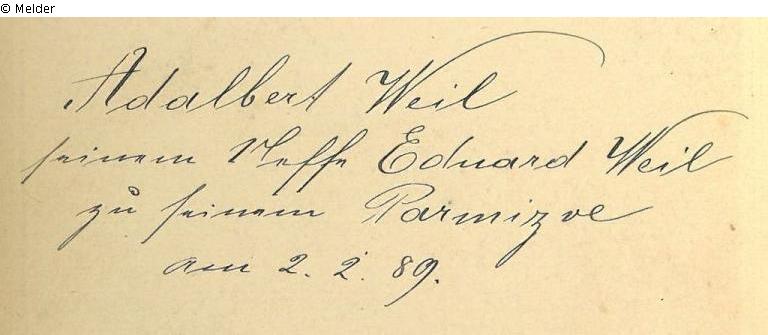 © Melder
Adalbert Weil
seinem Neffe Eduard Weil
zu seinem Parmizve
am 2. 2. 89.